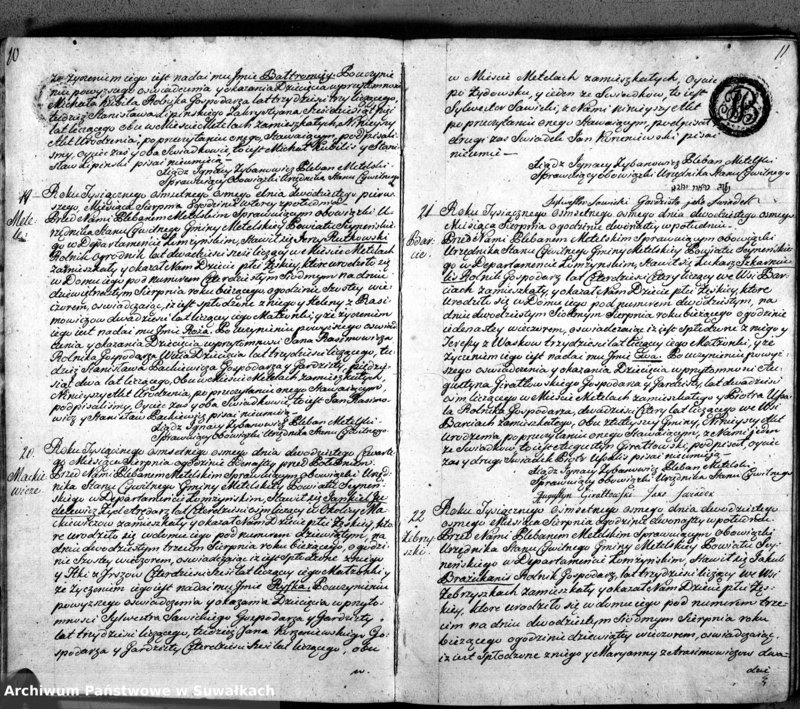 10
że życzeniem iego iest nadać mu Jmie Bałtromiéy. Po uczynie
niu powyższego oświadczenia y okazania Dziecięcia w przytomności
Michała Kubila Rolnika Gospodarza lat trzydzieści trzy liczącego,
tudzież Stanisława Lipińskiego Zakrystyana sześćdziesiąt pięć
lat liczącego obu w Mieście Metelach zamieszkałych. Niniéyszy
Akt Urodzenia, po przeczytaniu onego Stawaiącym, podpisali
śmy, oyciec zaś y oba Świadkowie, to iest Michał Kubilis y Stani
sław Lipiński pisać nieumieią —
Xiądz Jgnacy Żybanowicz Pleban Metelski
Sprawuiący Obowiązki Urzędnika Stanu Cywilnego
19
Mete
le.
Roku Tysiącznego ośmsetnego ósmego dnia dwudziestego pierw
szego, Miesiąca Sierpnia o godzinie wtorey z południa
Przed Nami Plebanem Metelskim Sprawuiącym obowiązki U
rzędnika Stanu Cywilnego Gminy Metelskiéy Powiatu Seyneńskie
go w Departamencie Łomżyńskim, Stawił się Jerzy Rutkowski
Rolnik Ogrodnik lat dwadzieścia sześć liczący w Mieście Metelach
zamieszkały y okazał Nam Dziecie płci Żeńskiéy, które urodziło się
w Domu iego pod numerem Czterdziestym Siódmym na dniu
dziewiętnastym Sierpnia roku bieżącego o godzinie Szóstéy wie
czorem, oświadczaiąc, iż iest spłodzone z niego y Heleny z Rasi
mowiczów dwadzieścia lat liczącey iego Małżonki, y że życzeniem
iego iest nadać mu Jmie Róża. Po uczynieniu powyższego oświad
czenia y okazania Dziecięcia w przytomności Jana Rasimowicza
Rolnika Gospodarza Wuia Dziecięcia lat trzydzieści liczącego, tu
dzież Stanisława Backiewicza Gospodarza y Gardzisty, pięćdzie
siąt dwa lat liczącego, Obu w Mieście Metelach zamieszkałych
Niniéyszy Akt Urodzenia, po przeczytaniu onego Stawaiącym,
podpisaliśmy, Oyciec zaś y oba Świadkowie, to iest Jan Rasimo
wicz y Stanisław Backiewicz pisać nieumieią —
Xiądz Jgnacy Żybanowicz Pleban Metelski
Sprawuiący obowiązki Urzędnika Stanu Cywilnego
20.
Mackie
wicze
Roku Tysiącznego ośmsetnego ósmego dnia dwudziestego Czwarte
go Miesiąca Sierpnia o godzinie dziesiątey przed Południem
Przed Nami Plebanem Metelskim Sprawuiącym obowiązki Urzę
dnika Stanu Cywilnego Gminy Metelskiéy Powiatu Seyneń
skiego w Departamencie Łomżyńskim, Stawił się Jankiel Ju
delewicz Żyd Arędarz lat Czterdzieści ośm liczący w Okolicy Ma
ckiewiczow zamieszkały y okazał Nam Dziecie płci Żeńskiéy, któ
re urodziło się w domu iego pod numerem Dziewiątym, na
dniu dwudziestym trzecim Sierpnia roku bieżącego, o godzi
nie Szóstéy wieczorem, oświadczaiąc iż iest spłodzone z niego
y Itki z Jrszow Czterdzieści Sześć lat liczącey iego Małżonki y
że życzeniem iego iest nadać mu Jmie Chyska. Po uczynieniu
powyższego oświadczenia y okazania Dziecięcia w przyto
mności Sylwestra Sawickiego Gospodarza y Gardzisty
lat trzydzieści liczącego, tudzież Jana Kurzeniewskiego Go
spodarza y Gardzisty Czterdzieści Sześć lat liczącego, obu
w
11
w Mieście Metelach zamieszkałych, Oyciec
po żydowsku, y ieden ze Świadków, to iest
Sylwester Sawicki, z Nami Niniéyszy Akt
po przeczytaniu onego Stawaiącym, podpisał,
drugi zaś Świadek Jan Kurzeniewski pisać
nieumie —
Xiądz Jgnacy Żybanowicz Pleban Metelski
Sprawuiący obowiązki Urzędnika Stanu Cywilnego
Sylwester Sawicki Gardzista jako Świadek
21.
Bar
cie.
Roku Tysiącznego ośmsetnego ósmego dnia dwudziestego ósmego
Miesiąca Sierpnia o godzinie dwunastéy w południe.
Przed Nami Plebanem Metelskim Sprawuiącym obowiązki
Urzędnika Stanu Cywilnego Gminy Metelskiéy, Powiatu Seyneńskie
go w Departamencie Łomżyńskim, Stawił się Łukasz Sekamu
lis Rolnik Gospodarz, lat Czterdzieści Cztery liczący we Wsi Bar
ciach zamieszkały, y okazał Nam Dziecie płci Żeńskiéy, które
urodziło się w Domu iego pod numerem dwudziestym, na
dniu dwudziestym Siódmym Sierpnia roku bieżącego o godzinie
iedenastéy wieczorem, oświadczaiąc iż iest spłodzone z niego y
Teressy z Wasków trzydzieści lat liczącey iego Małżonki, y że
życzeniem iego iest nadać mu Jmie Ewa. Po uczynieniu powyż
szego oświadczenia y okazania Dziecięcia w przytomności Au
gustyna Giratowskiego Gospodarza y Gardzisty, lat dwadzieścia
ośm liczącego w Mieście Metelach zamieszkałego y Piotra Upa
la Rolnika Gospodarza, dwadzieścia Cztery lat liczącego we Wsi
Barciach zamieszkałego, obu z tutéyszéy Gminy, Niniéyszy Akt
Urodzenia po przeczytaniu onego Stawaiącym, z Nami ieden
ze Świadków, to iest Augustyn Giratowski podpisał, oyciec
zaś y drugi Świadek Piotr Upalis pisać nieumieią —
Xiądz Jgnacy Żybanowicz Pleban Metelski
Sprawuiący obowiązki Urzędnika Stanu Cywilnego
Augustyn Giratowski Jako Świadek
22
Żebry
szki.
Roku Tysiącznego ośmsetnego ósmego dnia dwudziestego
ósmego Miesiąca Sierpnia, o godzinie dwunastéy w południe
Przed Nami Plebanem Metelskim Sprawuiącym obowiązki
Urzędnika Stanu Cywilnego Gminy Metelskiéy Powiatu Sey
neńskiego w Departamencie Łomżyńskim, Stawił się Jakub
Drażukanis Rolnik Gospodarz, lat trzydzieści liczący we Wsi
Żebryszkach zamieszkały y okazał Nam Dziecie płci Żeń
skiéy, które urodziło się w domu iego pod numerem trze
cim na dniu dwudziestym Siódmym Sierpnia roku
bieżącego o godzinie dziewiątéy wieczorem, oświadczaiąc,
iż iest spłodzone z niego y Maryanny z Arasimowiczów dwa
dzie
Archiwum Państwowe w Suwałkach